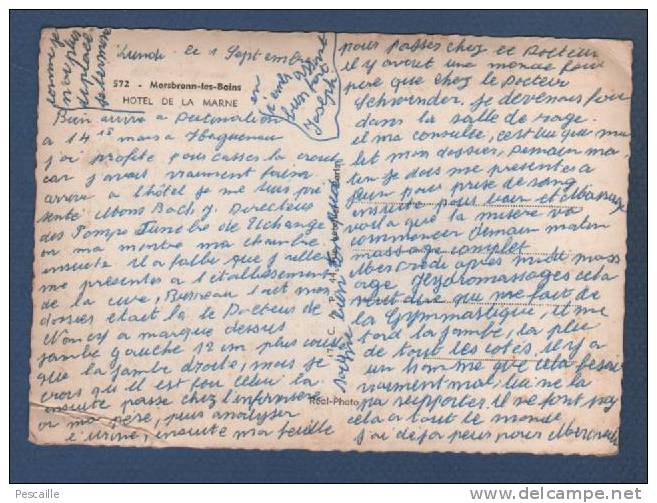 Lundi le 1 Septembre
572 - Morsbronn-les-Bains
HOTEL DE LA MARNE
Bien arrivé a Destination
a 14 15 mais a Haguenau
j'ai profité pour casser la croute
car j'avais vraiment faim
arrivé a l'hôtel je me suis pré
senté Mons Bach J. Directeur
des Pompe Funebre de
on ma montré ma chambre.
ensuite il a fallu que j'aille
me presenter a l'etablissement
de la cure, Bureau
dossier était la le Docteur de
Nancy a marqué dessus
jambe gauche 12 cm plus court
que la jambe droite, mais je
crois qu'il est fou celui la
ensuite passe chez l'infirmiere
on ma pesé, puis analyser
l'urine, ensuite ma feuille
pour passer chez le Docteur
il y avait une monde fou
pire que chez le Docteur
Schneider, je devenais fou
dans la salle de rage.
il ma consulté, c'est lui qui
met mon dossier, Demain ma
tin je dois me presenter a
jeun pour prise de sang
ensuite pour
voila que la misère va
commencer demain matin
massage complet
Mercredi après midi mass
age Hydromassages cela
veut dire qu'on me fait de
la Gymnastique, il me
tord la jambe, la plie
de tout les cotés, il y a
un homme que cela fesait
vraiment mal, lui ne la
pas supporter il ne font pas
cela a tout le monde
j'ai déja peur pour Mercredi
comme je
n'ai plus
de place
je termine
Joseph
Réel-Photo